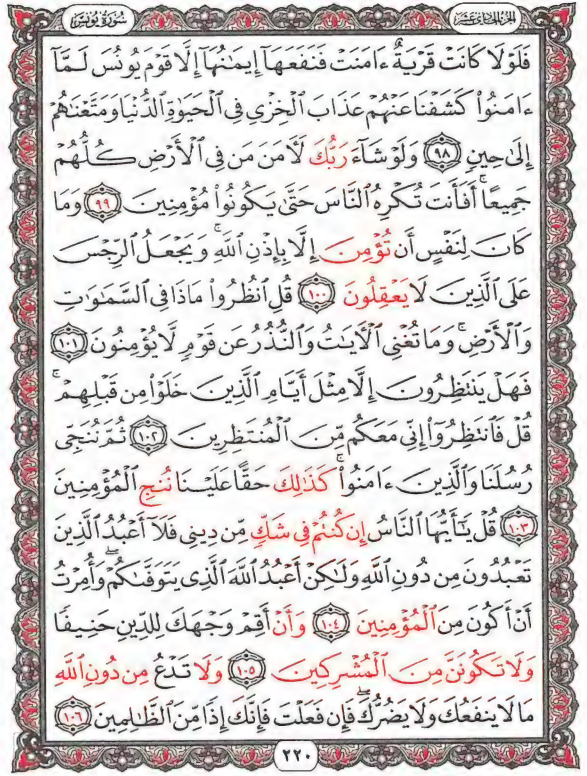 سُورَةُ يُونُسَ
الجُزْءُ الحَادِي عَشَرَ
فَلَوْلَا كَانَتْ قَرْيَةٌ ءَامَنَتْ فَنَفَعَهَآ إِيمَـٰنُهَآ إِلَّا قَوْمَ يُونُسَ لَمَّآ
ءَامَنُوا۟ كَشَفْنَا عَنْهُمْ عَذَابَ ٱلْخِزْىِ فِى ٱلْحَيَوٰةِ ٱلدُّنْيَا وَمَتَّعْنَـٰهُمْ
إِلَىٰ حِينٍ ٩٨ وَلَوْ شَآءَ رَبُّكَ لَـَٔامَنَ مَن فِى ٱلْأَرْضِ كُلُّهُمْ
جَمِيعًا ۚ أَفَأَنتَ تُكْرِهُ ٱلنَّاسَ حَتَّىٰ يَكُونُوا۟ مُؤْمِنِينَ ٩٩ وَمَا
كَانَ لِنَفْسٍ أَن تُؤْمِنَ إِلَّا بِإِذْنِ ٱللَّهِ ۚ وَيَجْعَلُ ٱلرِّجْسَ
عَلَى ٱلَّذِينَ لَا يَعْقِلُونَ ١٠٠ قُلِ ٱنظُرُوا۟ مَاذَا فِى ٱلسَّمَـٰوَٰتِ
وَٱلْأَرْضِ ۚ وَمَا تُغْنِى ٱلْـَٔايَـٰتُ وَٱلنُّذُرُ عَن قَوْمٍ لَّا يُؤْمِنُونَ ١٠١
فَهَلْ يَنتَظِرُونَ إِلَّا مِثْلَ أَيَّامِ ٱلَّذِينَ خَلَوْا۟ مِن قَبْلِهِمْ ۚ
قُلْ فَٱنتَظِرُوٓا۟ إِنِّى مَعَكُم مِّنَ ٱلْمُنتَظِرِينَ ١٠٢ ثُمَّ نُنَجِّى
رُسُلَنَا وَٱلَّذِينَ ءَامَنُوا۟ ۚ كَذَٰلِكَ حَقًّا عَلَيْنَا نُنجِ ٱلْمُؤْمِنِينَ
١٠٣ قُلْ يَـٰٓأَيُّهَا ٱلنَّاسُ إِن كُنتُمْ فِى شَكٍّ مِّن دِينِى فَلَآ أَعْبُدُ ٱلَّذِينَ
تَعْبُدُونَ مِن دُونِ ٱللَّهِ وَلَـٰكِنْ أَعْبُدُ ٱللَّهَ ٱلَّذِى يَتَوَفَّىٰكُمْ ۖ وَأُمِرْتُ
أَنْ أَكُونَ مِنَ ٱلْمُؤْمِنِينَ ١٠٤ وَأَنْ أَقِمْ وَجْهَكَ لِلدِّينِ حَنِيفًا
وَلَا تَكُونَنَّ مِنَ ٱلْمُشْرِكِينَ ١٠٥ وَلَا تَدْعُ مِن دُونِ ٱللَّهِ
مَا لَا يَنفَعُكَ وَلَا يَضُرُّكَ ۖ فَإِن فَعَلْتَ فَإِنَّكَ إِذًا مِّنَ ٱلظَّـٰلِمِينَ ١٠٦
٢٢٠